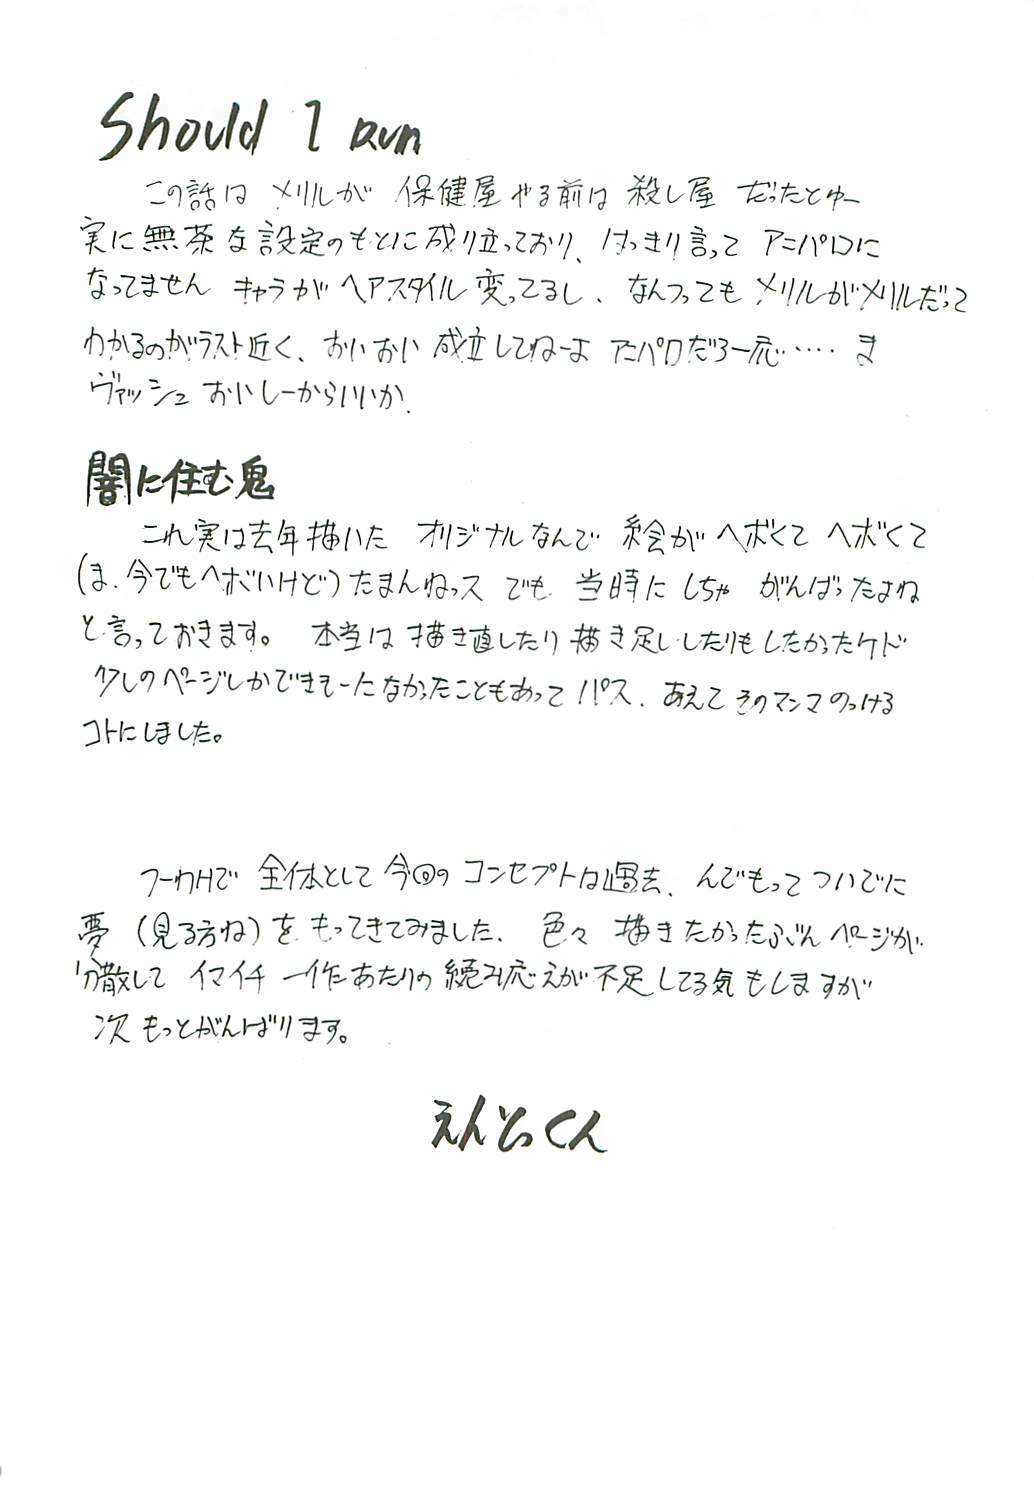 Should I Run
この話は メリルが 保健屋やる前は 殺し屋 だったとゆー
実に無茶な設定のもとに成り立っており、はっきり言って アニパロに
なってません キャラが ヘアスタイル変ってるし、なんつってもメリルがメリルだって
わかるのがラスト近く、おいおい 成立してねーよ アニパロだろ一応・・・・・ ま
ヴァッシュ おいしーからいいか.
闇に住む鬼
これ実は去年描いた オリジナルなんで 絵がヘボくて ヘボくて
(ま、今でもヘボいけど)たまんねっス でも 当時に しちゃ がんばったよね
と言っておきます。 本当は 描き直したり描き足ししたりもしたかったケド
少しのページしかできそーになかったこともあって パス、あえてそのマンマのっける
コトにしました。
つーわけで 全体として今回のコンセプトは過去、んでもって ついでに
夢 (見る方ね)を もってきてみました、色々 描きたかったぶん ページが
分散して イマイチ 一作あたりの読み応えが不足してる気もしますが
次 もっとがんばります。
えんどっくん